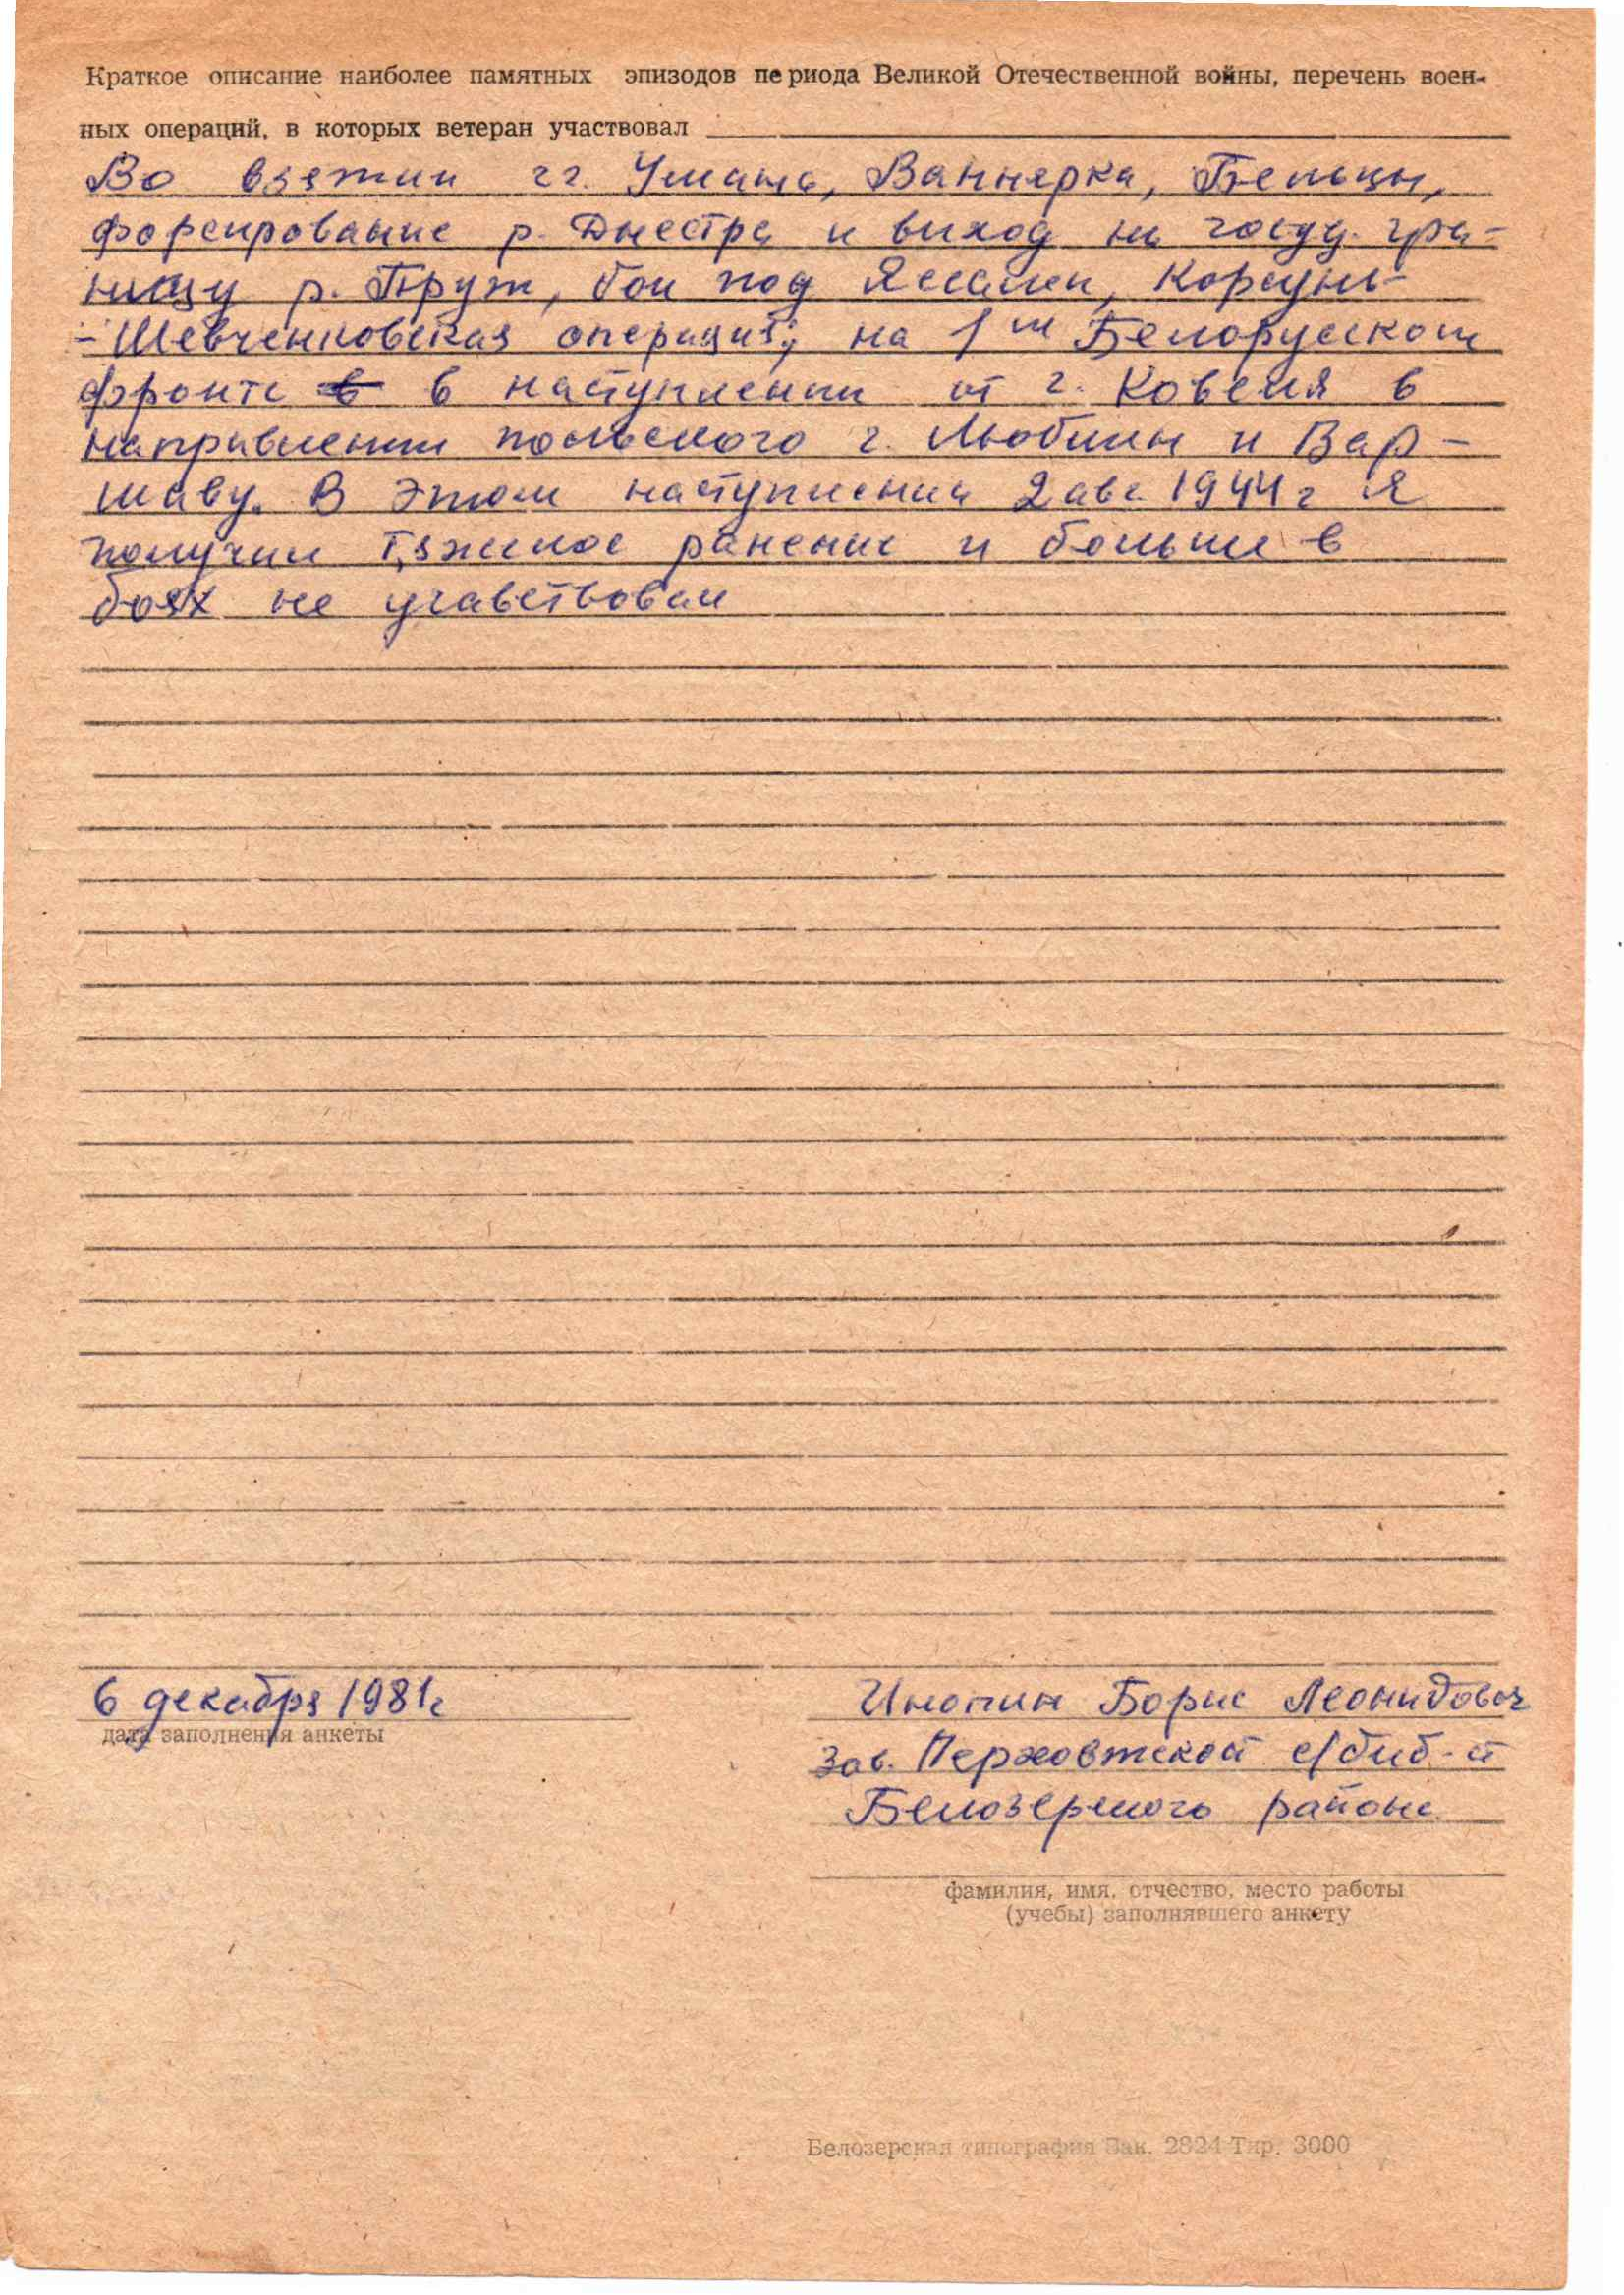 Краткое описание наиболее памятных эпизодов периода Великой Отечественной войны, перечень воен-
ных операций, в которых ветеран участвовал
Во взятии гг. Умань, Вапнярка, Бельцы,
форсирование р. Днестра и выход на госуд. гра-
ницу р. Прут, бои под Яссами, Корсунь-
-Шевченковская операция; на 1м Белорусском
фронте в в наступлении от г. Ковеля в
направлении польского г. Люблин и Вар-
шаву. В этом наступлении 2 авг. 1944 г я
получил тяжелое ранение и больше в
боях не учавствовал
6 декабря 1981г
дата заполнения анкеты
Инопин Борис Леонидович
Зав. с/биб-й
Белозерского района
фамилия, имя, отчество, место работы
(учебы) заполнявшего анкету
Белозерская типография Зак. 2824 Тир. 3000